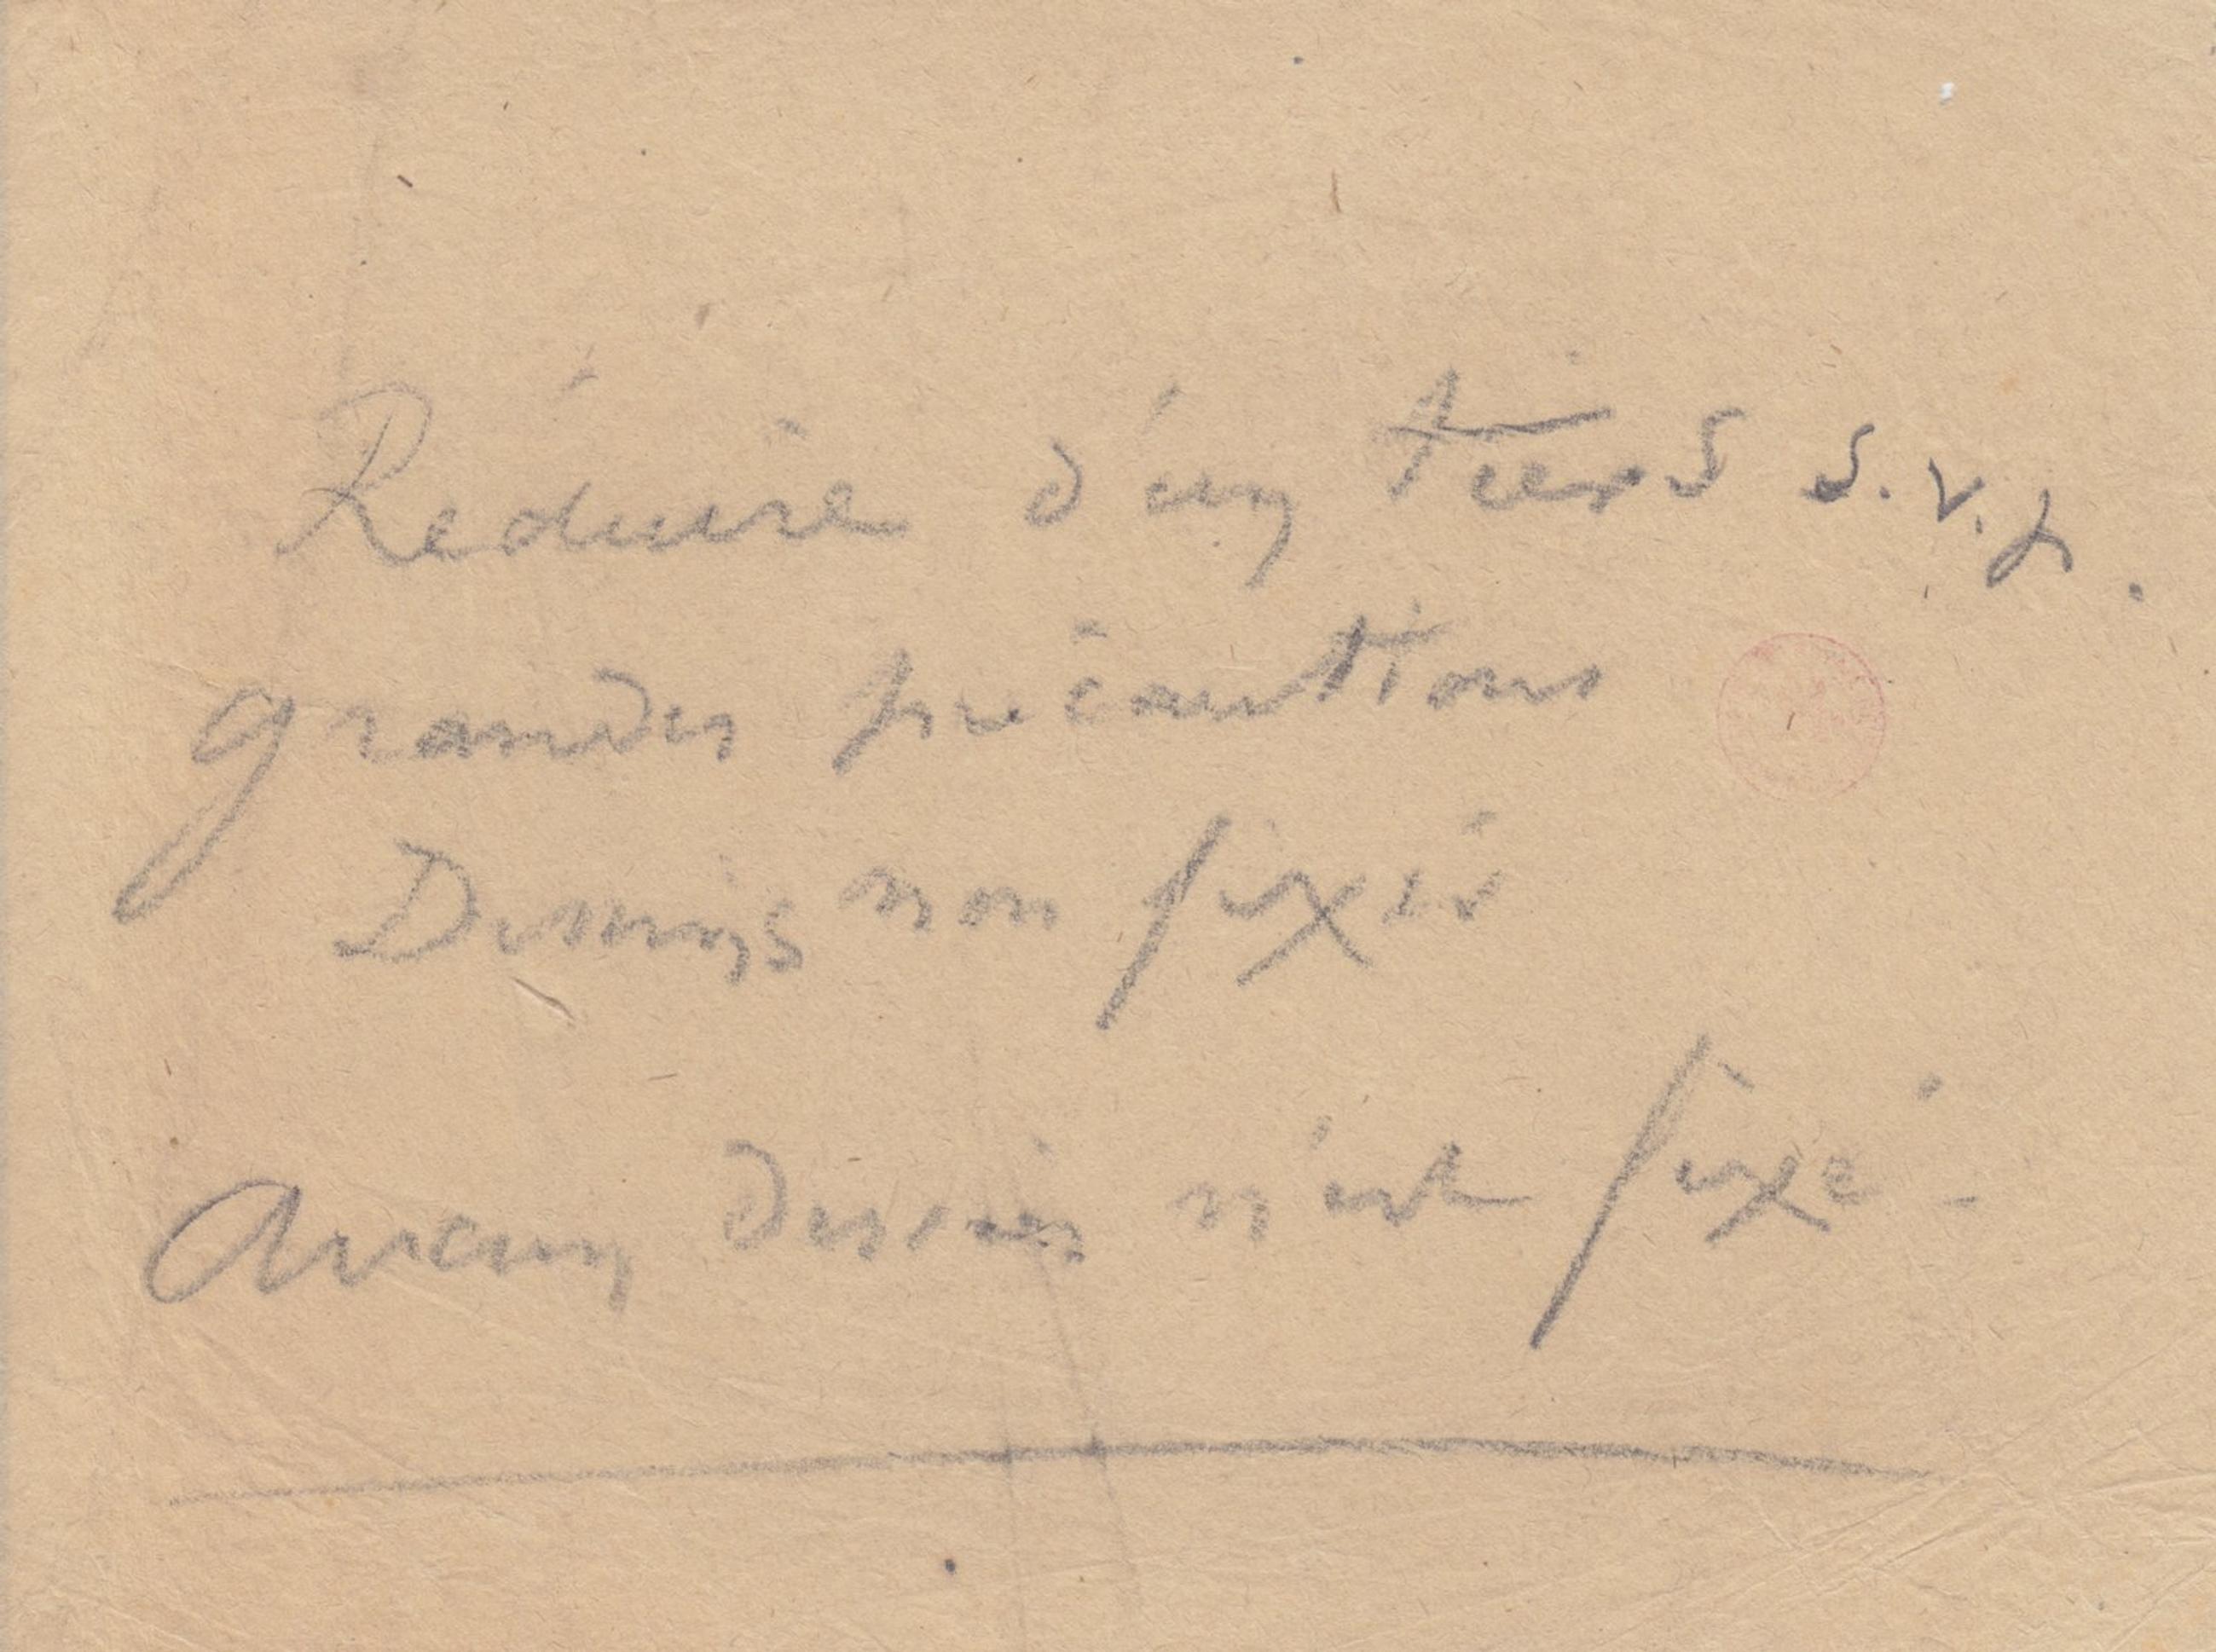 Réduire d'un tiers s.v.p.
grandes précautions
Dessins non fixés
Aucun dessin n'est fixé -